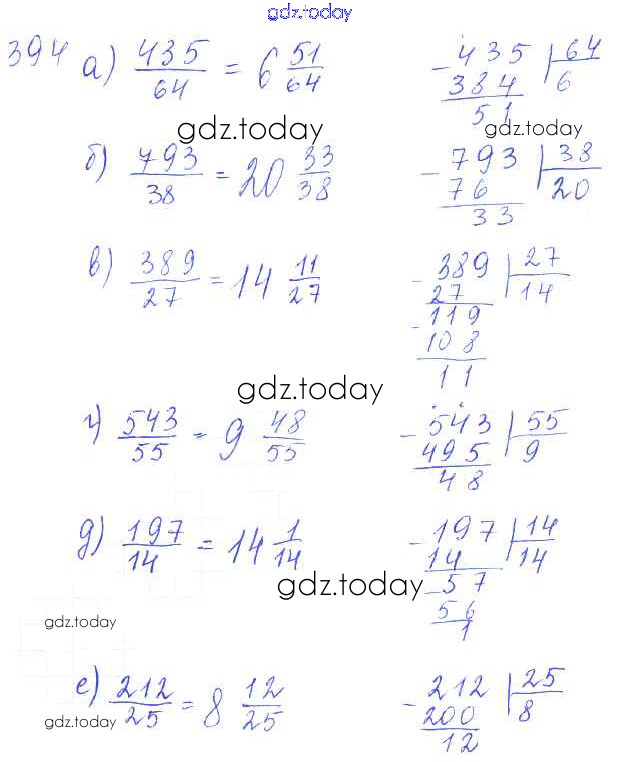 gdz.today
394 а) 435/64 = 6 51/64
435 | 64
- 384 | 6
51
gdz.today
gdz.today
б) 793/38 = 20 33/38
- 793 | 38
76 | 20
33
в) 389/27 = 14 11/27
- 389 | 27
27 | 14
- 119
108
11
gdz.today
г) 543/55 = 9 48/55
- 543 | 55
495 | 9
48
д) 197/14 = 14 1/14
- 197 | 14
14 | 14
- 57
56
1
gdz.today
gdz.today
е) 212/25 = 8 12/25
- 212 | 25
200 | 8
12
gdz.today
gdz.today